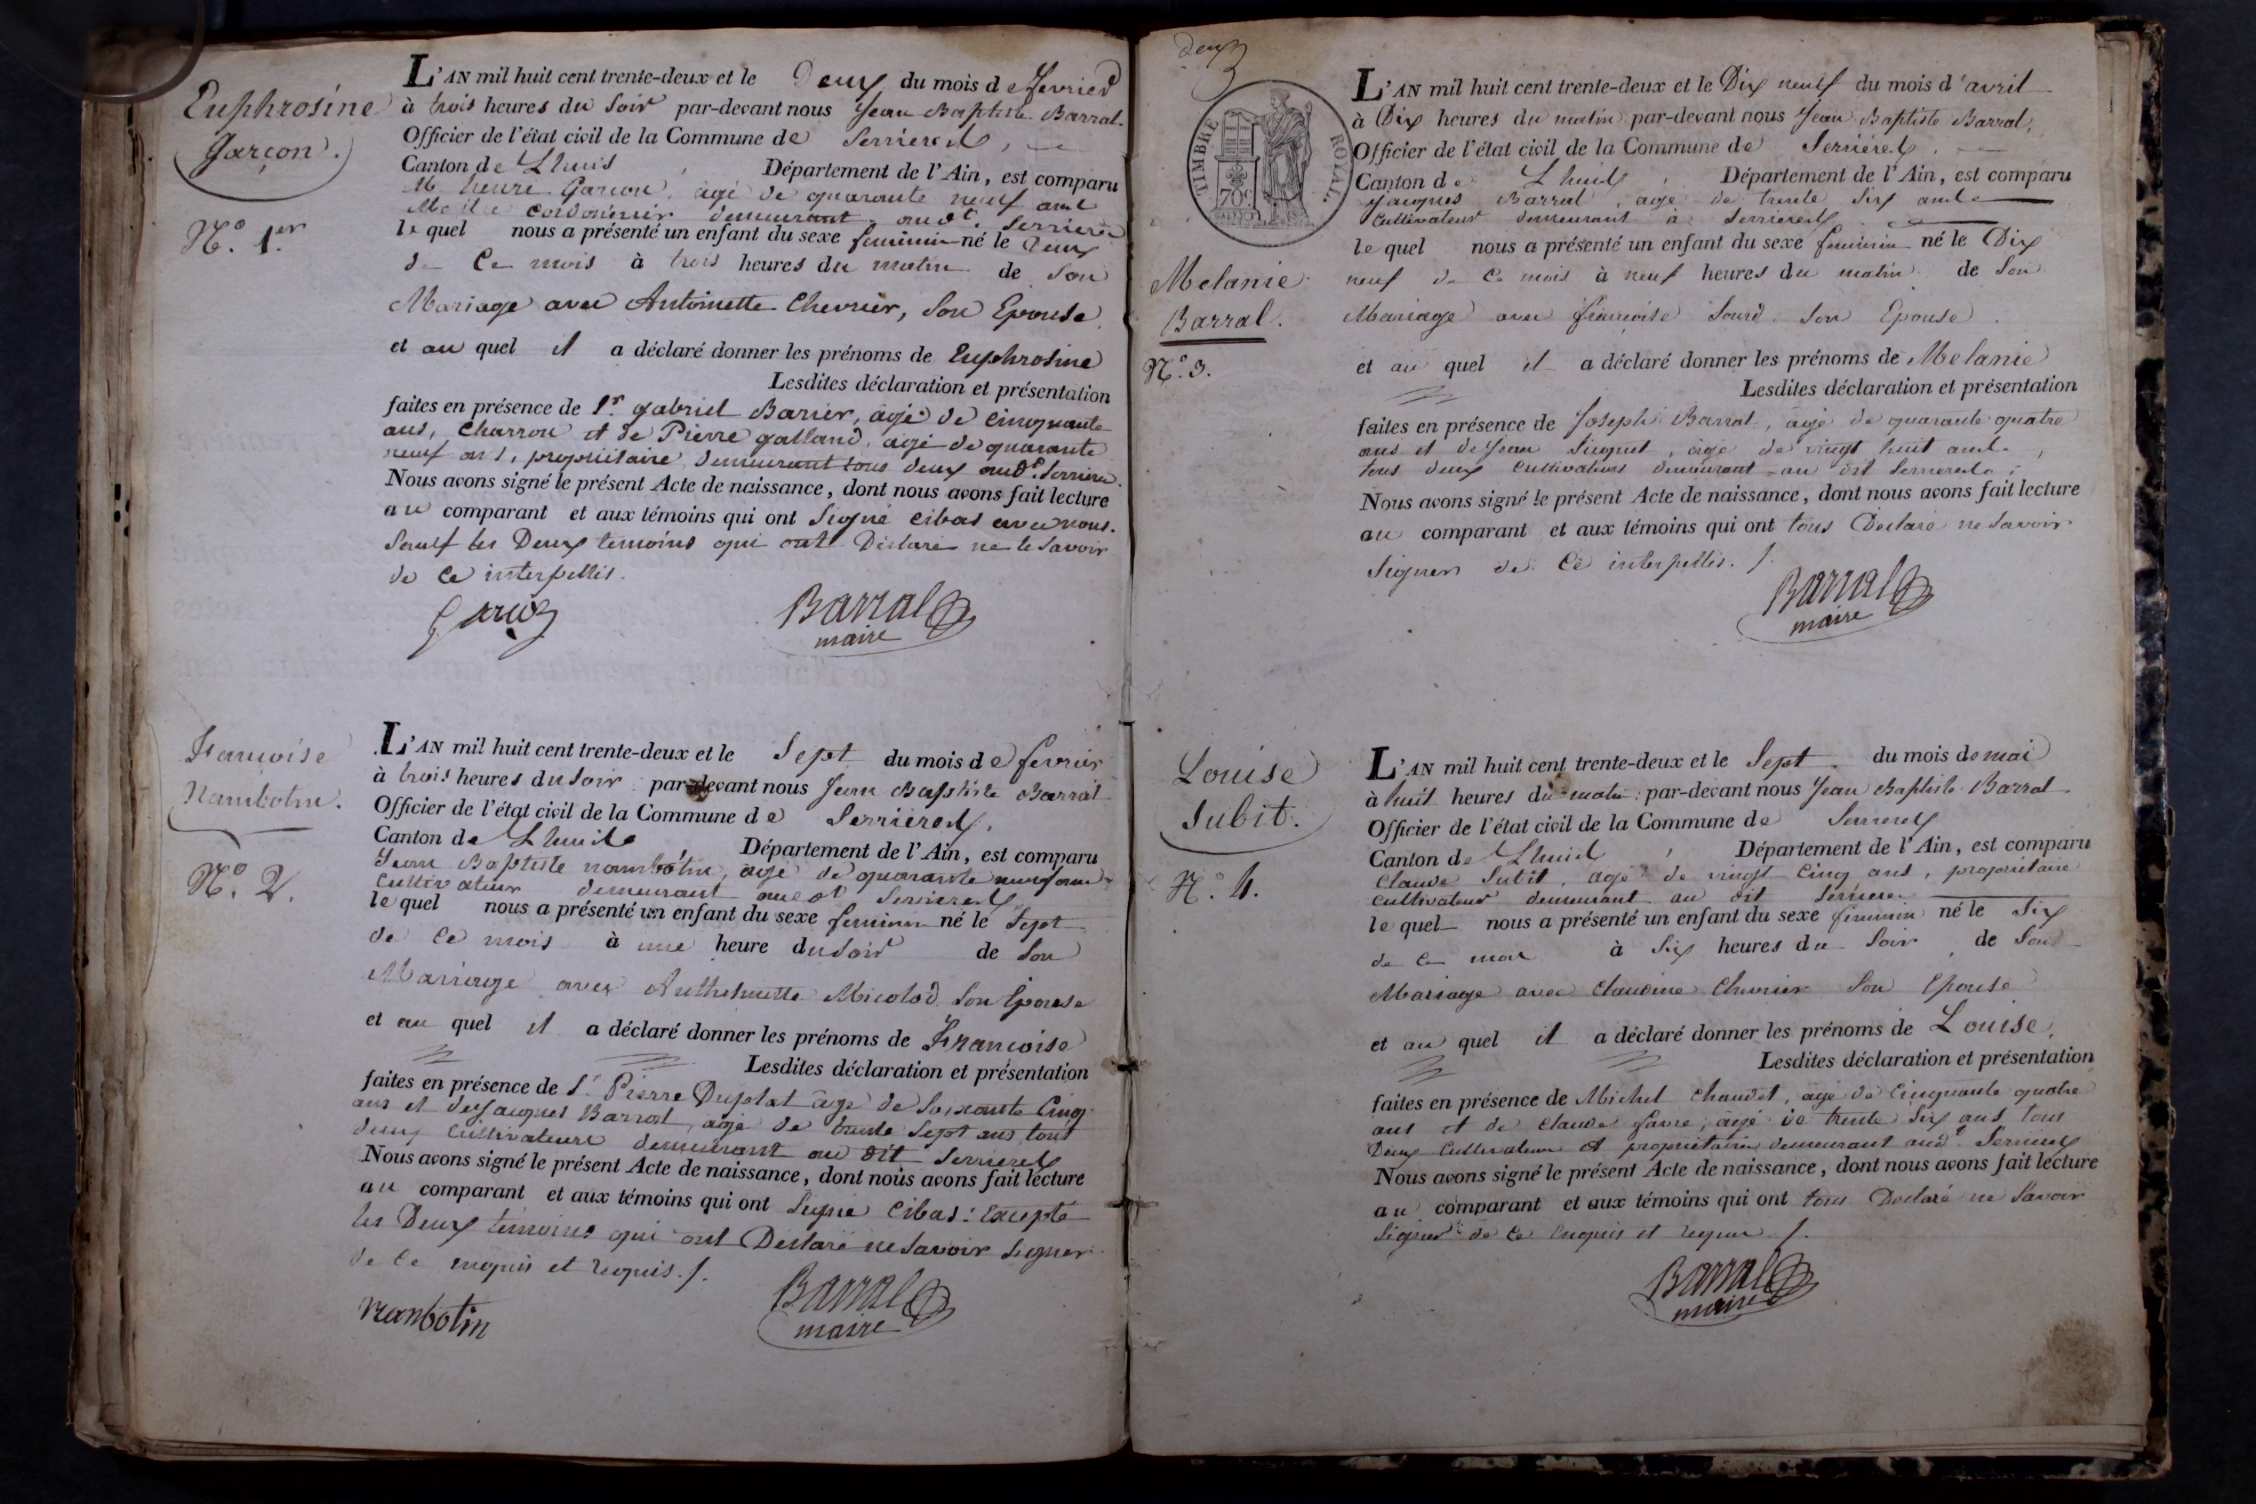 Euphrosine
Garçon.
N.º 1.er
L'AN mil huit cent trente-deux et le Deux du mois de fevrier
à trois heures du Soir par-devant nous Jean Baptiste Barral.
Officier de l'état civil de la Commune de Serrieres,
Canton de Lhuis, Département de l'Ain, est comparu
Garçon, agé de quarante neuf ans
Maitre cordonnier demeurant aud.t Serrieres
le quel nous a présenté un enfant du sexe feminin né le Deux
de Ce mois à trois heures du matin de Son
Mariage avec Antoinette Chevrier, Son Epouse.
et au quel il a déclaré donner les prénoms de Euphrosine
Lesdites déclaration et présentation
faites en présence de S.r gabriel Barier, agé de cinquante
ans, Charron et de Pierre galland, agé de quarante
neuf ans, propriétaire demeurant tous deux aud.t Serriere.
Nous avons signé le présent Acte de naissance, dont nous avons fait lecture
au comparant et aux témoins qui ont Signé cibas avec nous.
Sauf les Deux temoins qui ont Déclaré ne le Savoir
de Ce interpellés.
Barral
maire
Francoise
Nambotin.
N.º 2.
L'AN mil huit cent trente-deux et le Sept du mois de fevrier
à trois heures du Soir par-devant nous Jean Baptiste Barral
Officier de l'état civil de la Commune de Serrieres,
Canton de Lhuis Département de l'Ain, est comparu
Jean Baptiste nambotin, agé de quarante neuf ans
Cultivateur demeurant aud.t Serrieres
le quel nous a présenté un enfant du sexe feminin né le Sept
de Ce mois à une heure du Soir de Son
Mariage avec Micolod Son Epouse
et au quel il a déclaré donner les prénoms de Francoise
Lesdites déclaration et présentation
faites en présence de S.r Pierre Duplat agé de Soixante Cinq
ans et de Jacques Barral, agé de trente Sept ans tous
deux Cultivateurs demeurant au dit Serrieres
Nous avons signé le présent Acte de naissance, dont nous avons fait lecture
au comparant et aux témoins qui ont Signé Cibas: Excepté
les Deux témoins qui ont Déclaré ne Savoir Signer
de Ce enquis et requis./.
Nambotin
Barral
maire
deux
TIMBRE ROYAL
70c
L'AN mil huit cent trente-deux et le Dix neuf du mois d'avril
à Dix heures du matin par-devant nous Jean Baptiste Barral,
Officier de l'état civil de la Commune de Serrieres,
Canton de Lhuis, Département de l'Ain, est comparu
Jacques Barral, agé de trente Six ans
Cultivateur demeurant à Serrieres
le quel nous a présenté un enfant du sexe feminin né le Dix
neuf de Ce mois à neuf heures du matin de Son
Mariage avec françoise Sourd Son Epouse
et au quel il a déclaré donner les prénoms de Melanie
Lesdites déclaration et présentation
faites en présence de Joseph Barral, agé de quarante quatre
ans et de Jean Suquet, agé de vingt huit ans,
tous deux Cultivateurs demeurant au dit Serrieres;
Nous avons signé le présent Acte de naissance, dont nous avons fait lecture
au comparant et aux témoins qui ont tous Déclaré ne Savoir
Signer de Ce interpellés./.
Barral
maire
Melanie
Barral.
N.º 3.
Louise
Subit.
N.º 4.
L'AN mil huit cent trente-deux et le Sept du mois de mai
à huit heures du matin par-devant nous Jean Baptiste Barral
Officier de l'état civil de la Commune de Serrieres
Canton de Lhuis, Département de l'Ain, est comparu
Claude Subit, agé de vingt Cinq ans, propriétaire
Cultivateur demeurant au dit Serrieres
le quel nous a présenté un enfant du sexe feminin né le Six
de Ce mois à Six heures du Soir de Son
Mariage avec Claudine Chevrier Son Epouse
et au quel il a déclaré donner les prénoms de Louise,
Lesdites déclaration et présentation
faites en présence de Michel Chaudet, agé de Cinquante quatre
ans et de Claude favre, agé de trente Six ans tous
Deux Cultivateurs et propriétaires demeurant aud.t Serrieres
Nous avons signé le présent Acte de naissance, dont nous avons fait lecture
au comparant et aux témoins qui ont tous Déclaré ne Savoir
Signer de Ce enquis et requis ./.
Barral
maire